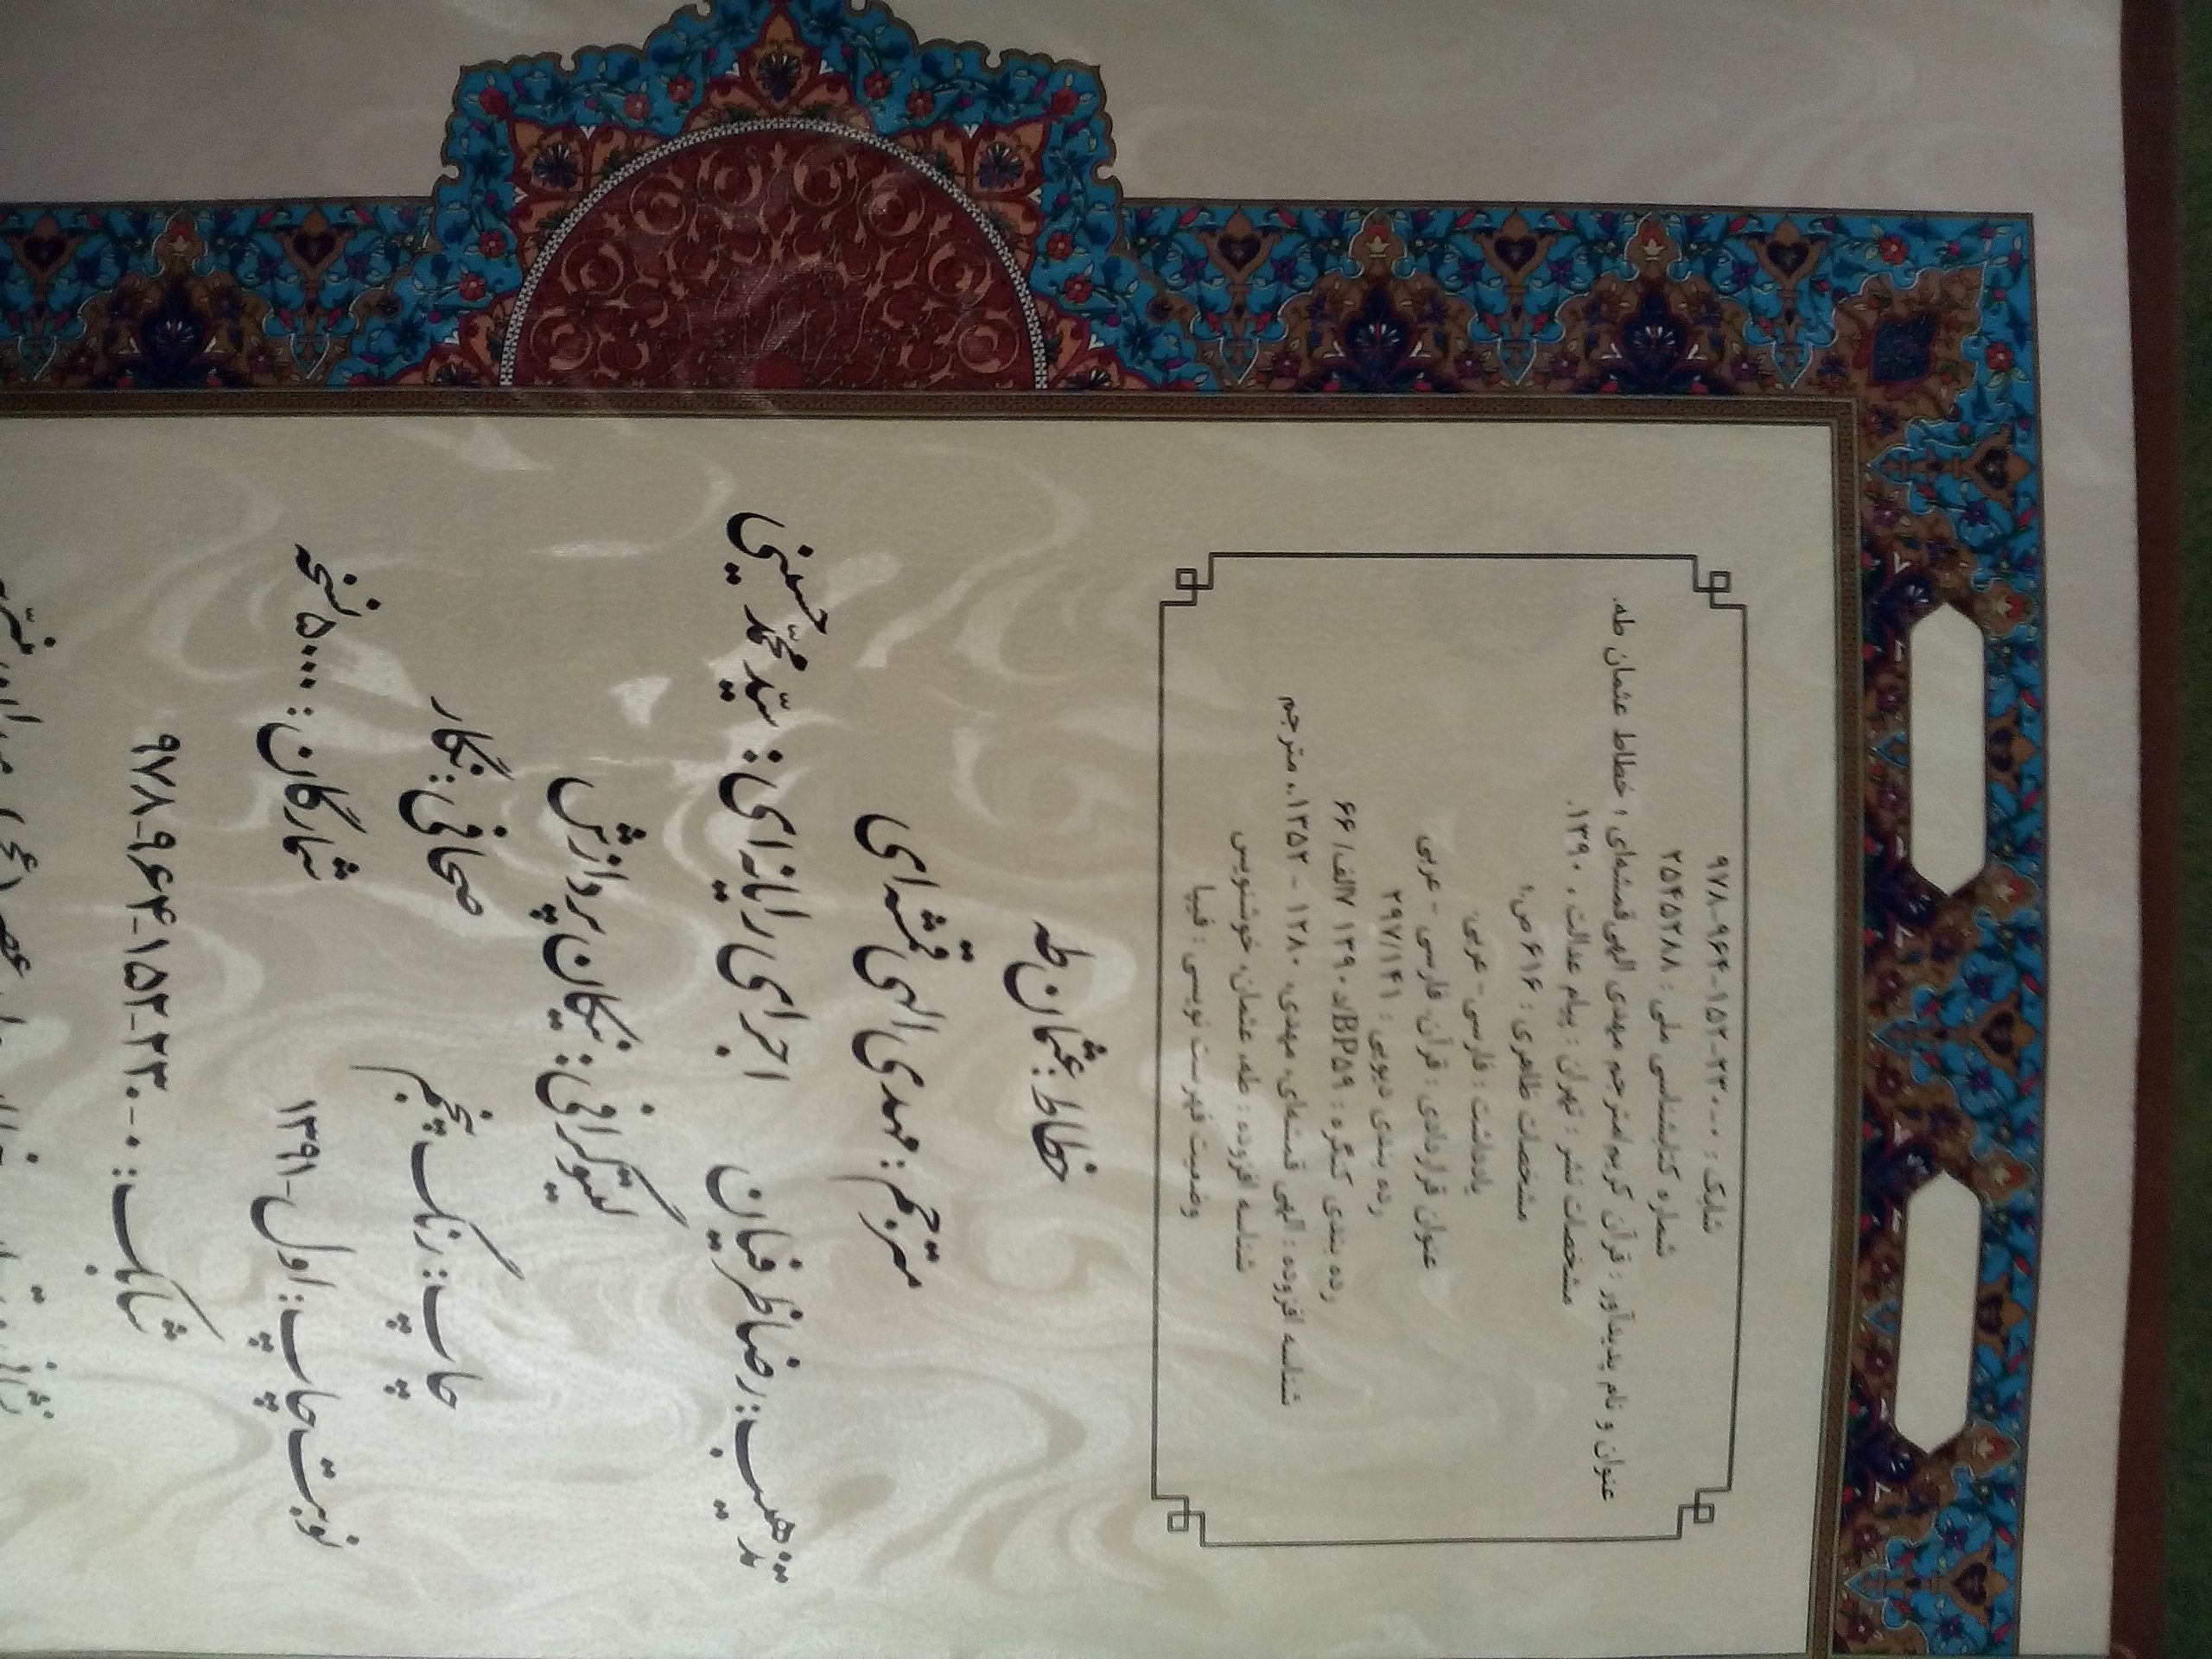 شابک : ۰-۲۳۰-۱۵۲-۹۶۴-۹۷۸
شماره کتابشناسی ملی : ۲۵۴۵۲۸۸
عنوان و نام پدیدآور : قرآن کریم/مترجم مهدی الهی‌قمشه‌ای ؛ خطاط عثمان طه.
مشخصات نشر : تهران : پیام عدالت ، ۱۳۹۰.
مشخصات ظاهری : ۶۱۶ ص.؛
یادداشت : فارسی - عربی.
عنوان قراردادی : قرآن. فارسی - عربی
رده بندی دیویی : ۲۹۷/۱۴۱
رده بندی کنگره : BP۵۹/ ۶۶ /الف۷ ۱۳۹۰د
شناسه افزوده : الهی قمشه‌ای، مهدی، ۱۲۸۰ - ۱۳۵۲.، مترجم
شناسه افزوده : طه، عثمان، خوشنویس
وضعیت فهرست نویسی : فیپا
خطاط: عثمان طه
مترجم: مهدی الهی قمشه‌ای
تذهیب: رضا ظریفیان اجرای رایانه‌ای: سیّد محمّد حسینی
لیتوگرافی: نیکان پردازش
چاپ: رنگ پنجم صحافی: نگار
نوبت چاپ: اول-۱۳۹۱ شمارگان: ۵۰۰۰ نسخه
شابک: ۰-۲۳۰-۱۵۲-۹۶۴-۹۷۸